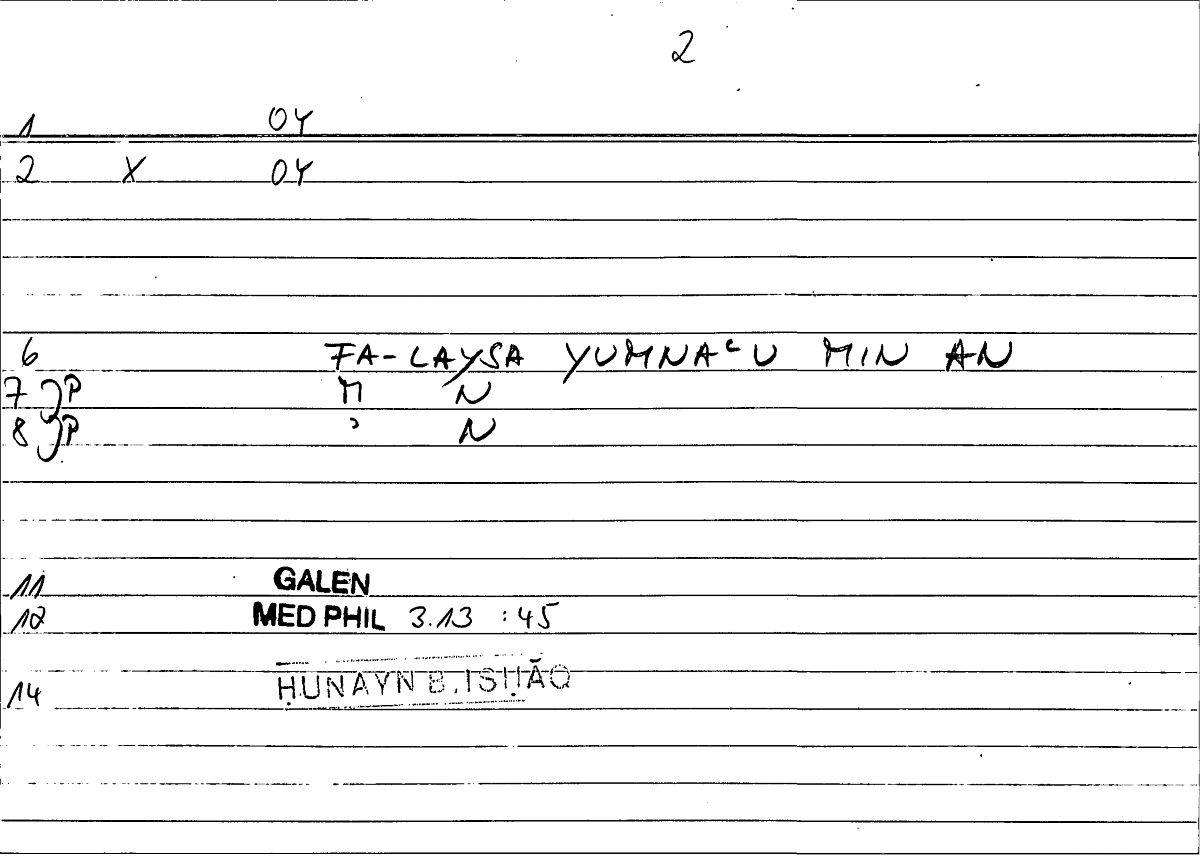 2
1 OY
2 X OY
6 FA-LAYSA YUMNAʿU MIN AN
7 P M N
8 P ʾ N
11 GALEN
12 MED PHIL 3.13 :45
14 ḤUNAYN B. ISḤĀQ